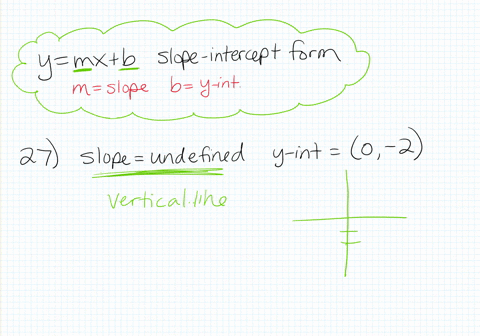 y=mx+b slope-intercept form
m=slope b=y-int.
27) slope=undefined y-int = (0,-2)
vertical line